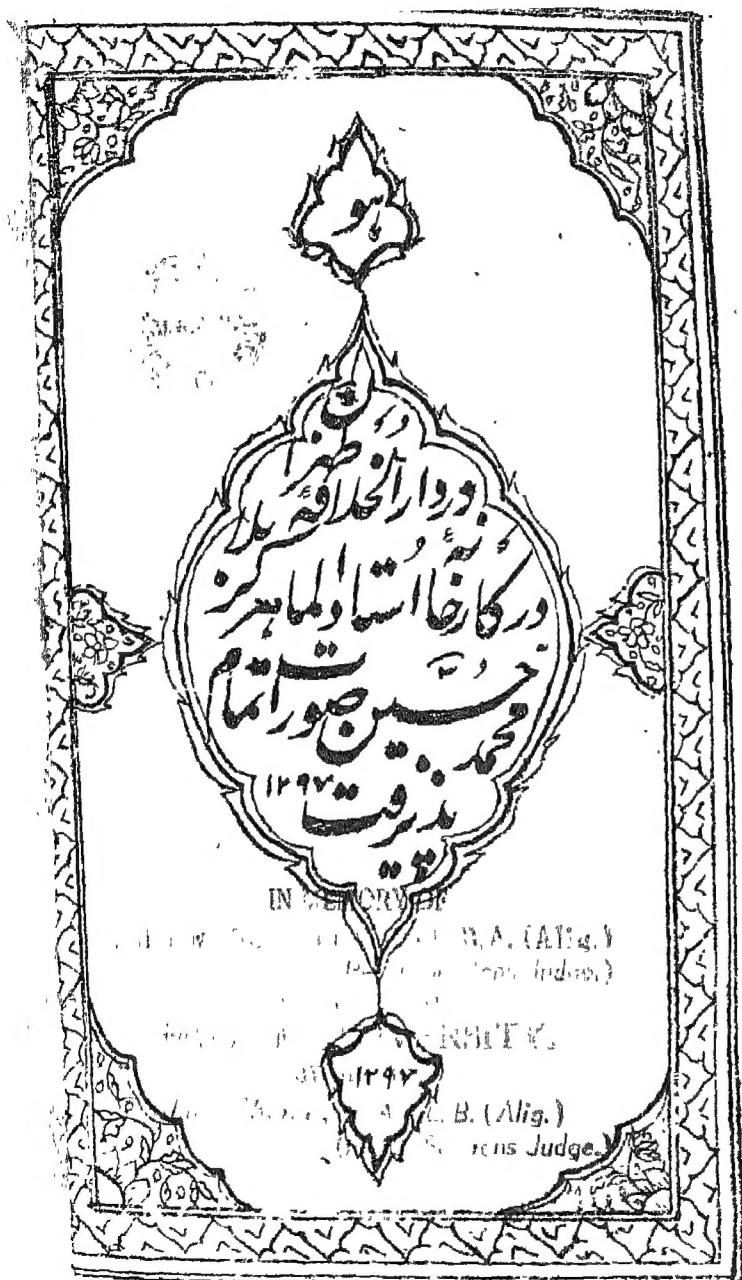 هو
در دار الخلافهٔ طهران
در کارخانهٔ استاد الماهر کربلا
محمد حسین صورت اتمام
پذیرفت ۱۲۹۷
IN MEMORY OF
B.A. (Alig.)
Indore.)
۱۲۹۷
B. (Alig.)
Judge.)